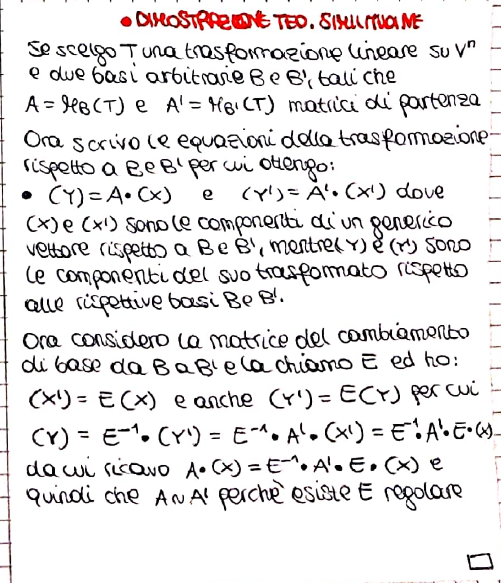 • DIMOSTRAZIONE TEO. SIMILITUDINE
Se scelgo T una trasformazione lineare su Vⁿ
e due basi arbitrarie B e B', tali che
A = M_B(T) e A' = M_B'(T) matrici di partenza
Ora scrivo le equazioni della trasformazione
rispetto a B e B' per cui ottengo:
• (Y) = A • (X) e (Y') = A' • (X') dove
(X) e (X') sono le componenti di un generico
vettore rispetto a B e B', mentre (Y) e (Y') sono
le componenti del suo trasformato rispetto
alle rispettive basi B e B'.
Ora considero la matrice del cambiamento
di base da B a B' e la chiamo E ed ho:
(X') = E(X) e anche (Y') = E(Y) per cui
(Y) = E⁻¹ • (Y') = E⁻¹ • A' • (X') = E⁻¹ • A' • E • (X)
da cui ricavo A • (X) = E⁻¹ • A' • E • (X) e
quindi che A ~ A' perchè esiste E regolare